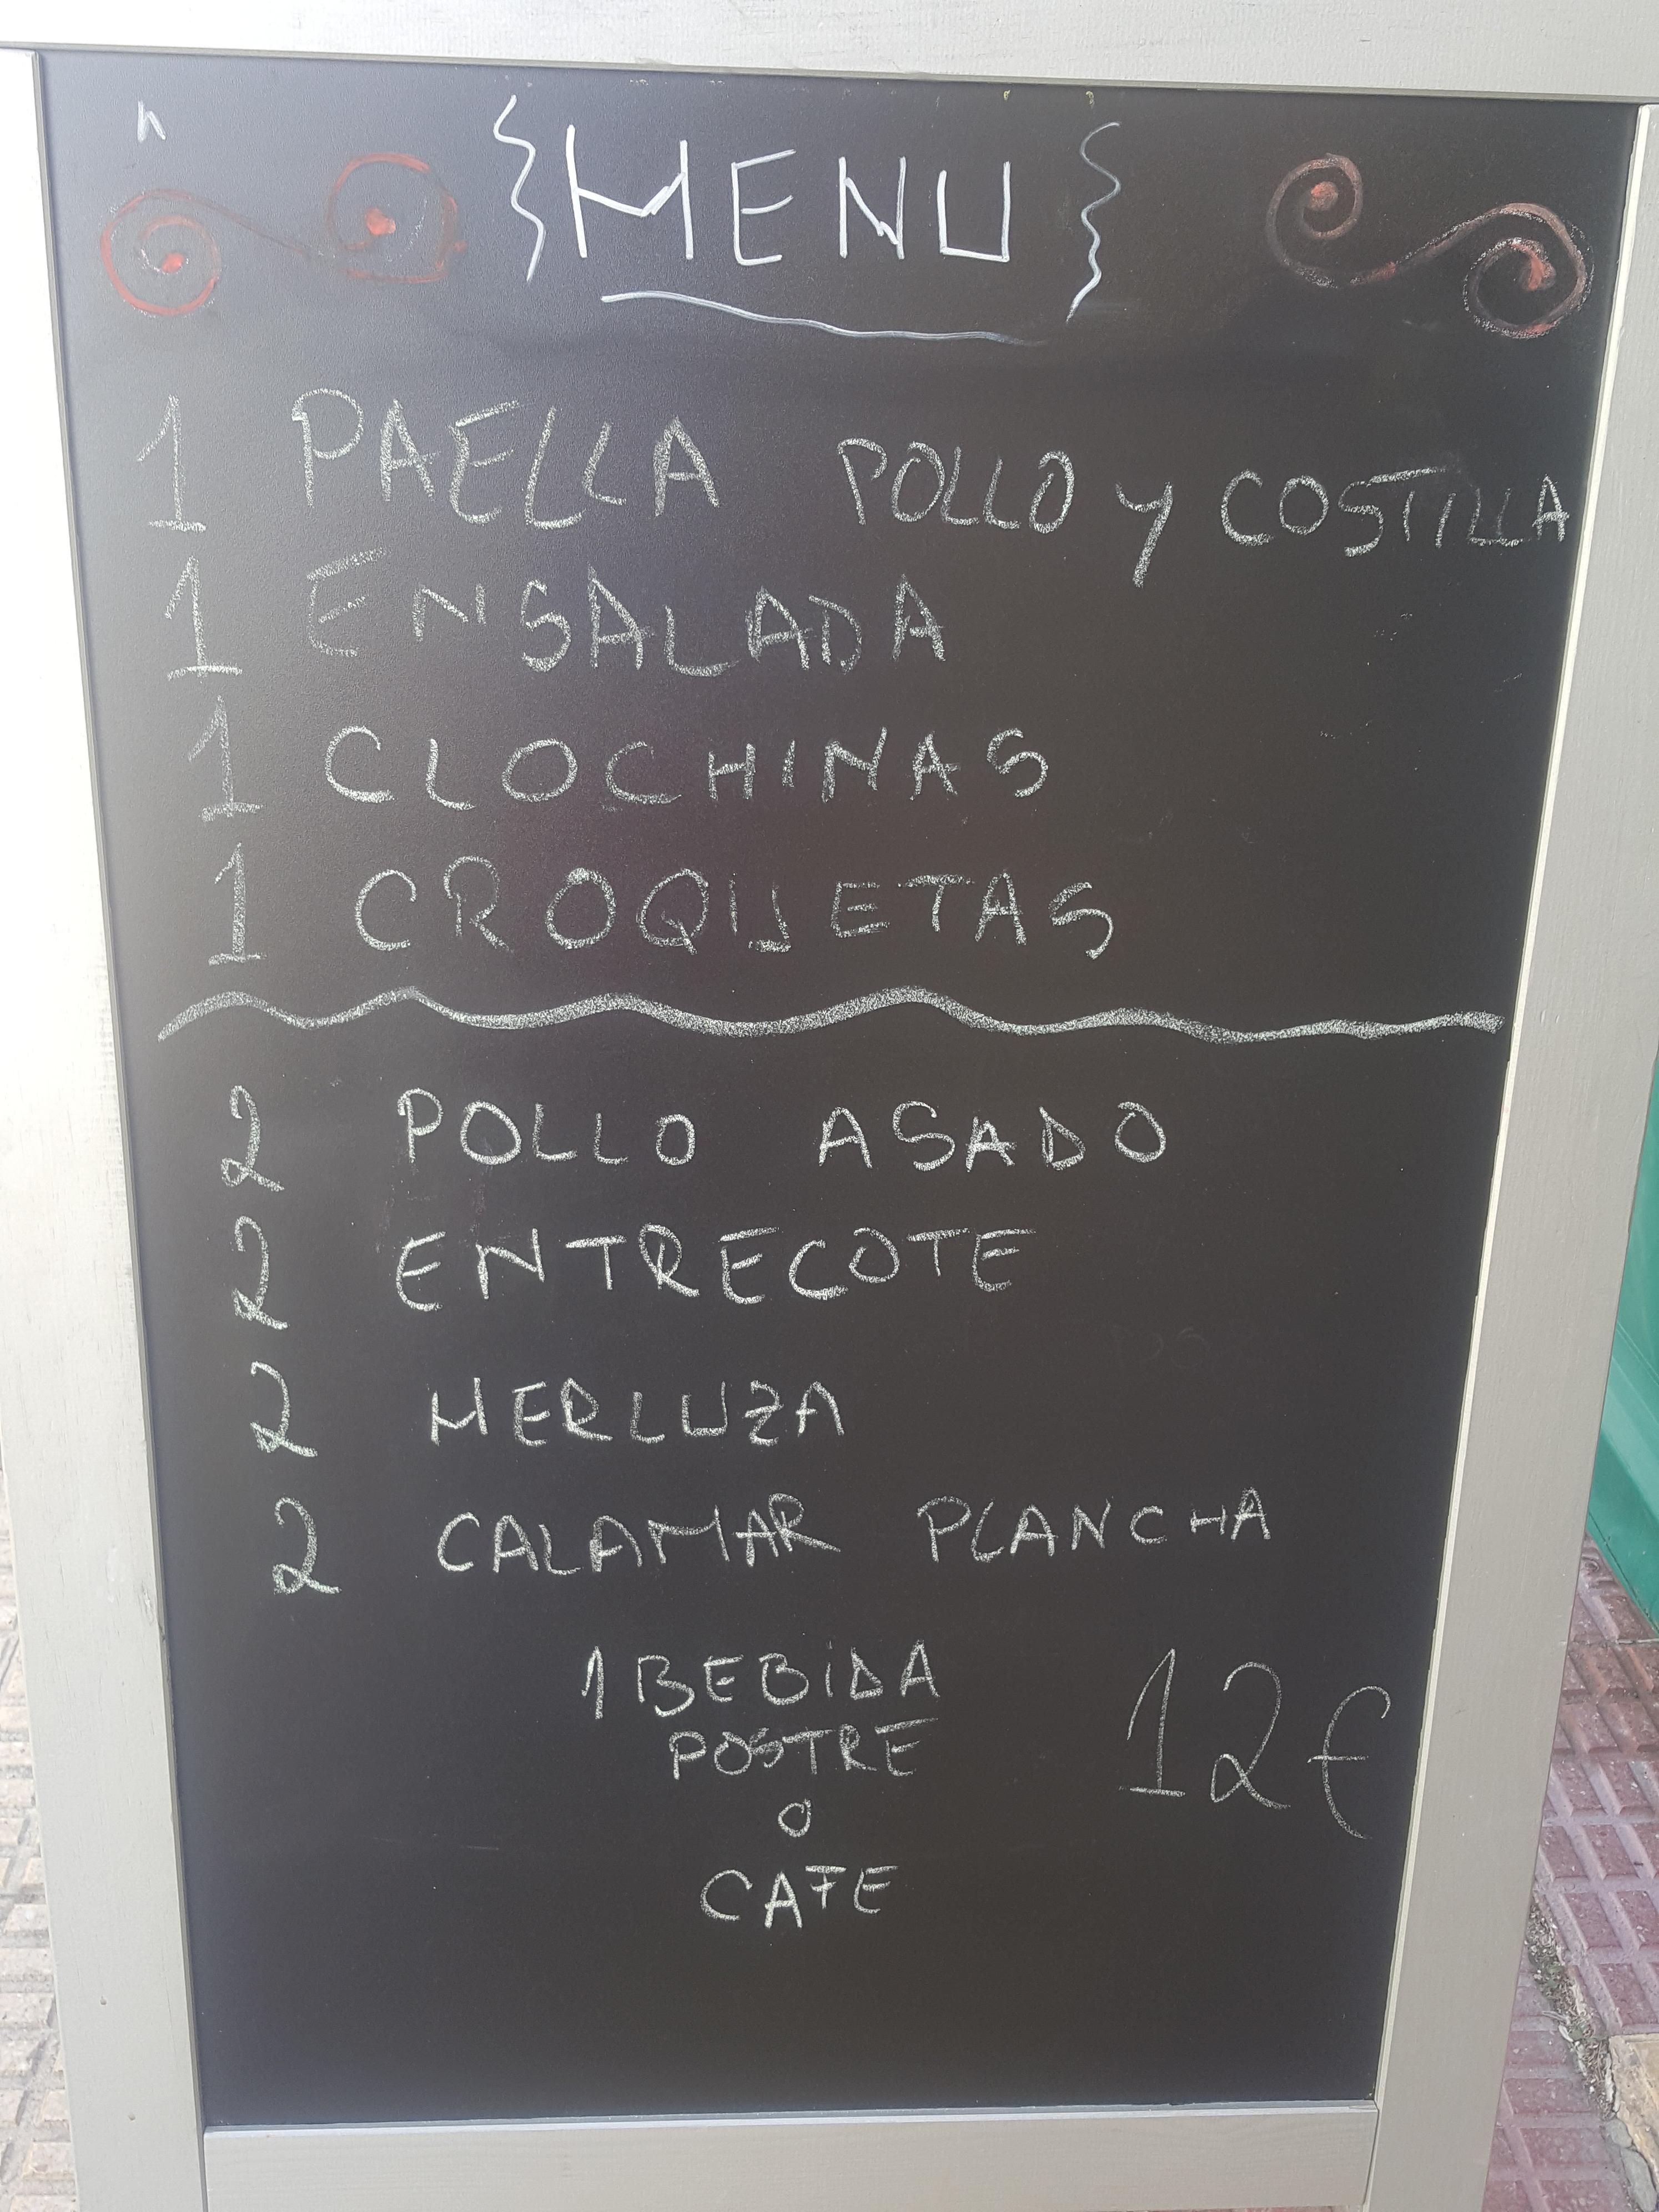 {MENU}
1 PAELLA POLLO Y COSTILLA
1 ENSALADA
1 CLOCHINAS
1 CROQUETAS
2 POLLO ASADO
2 ENTRECOTE
2 MERLUZA
2 CALAMAR PLANCHA
1 BEBIDA
POSTRE
O
CAFE
12€